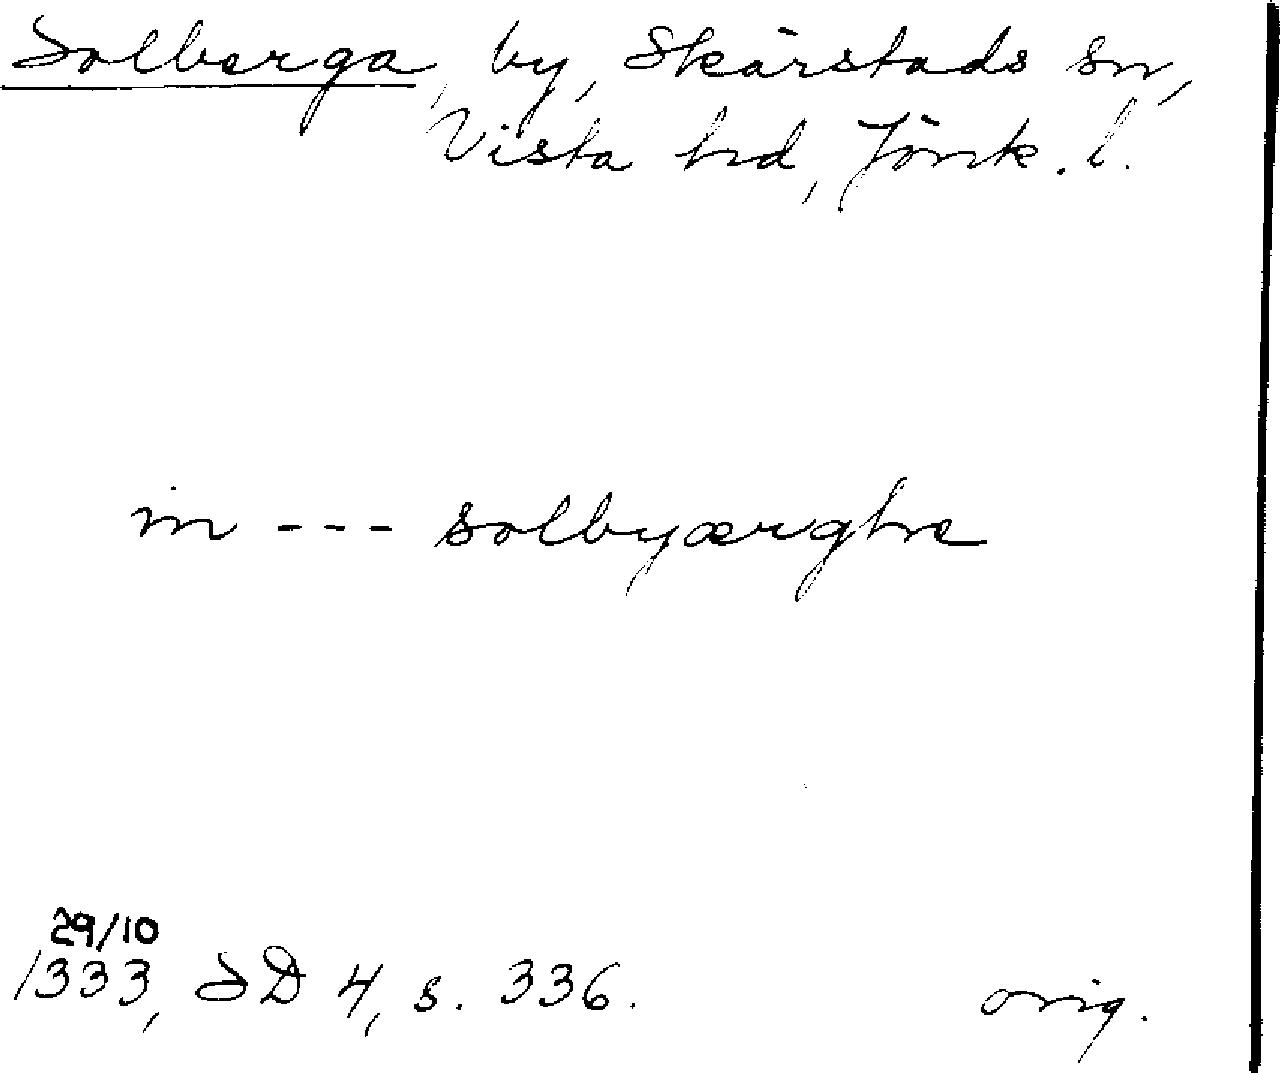 Solberga, by, Skärstads sn,
Vista hd, Jönk. l.
in --- solbyærghe
29/10
1333, SD 4, s. 336.
orig.